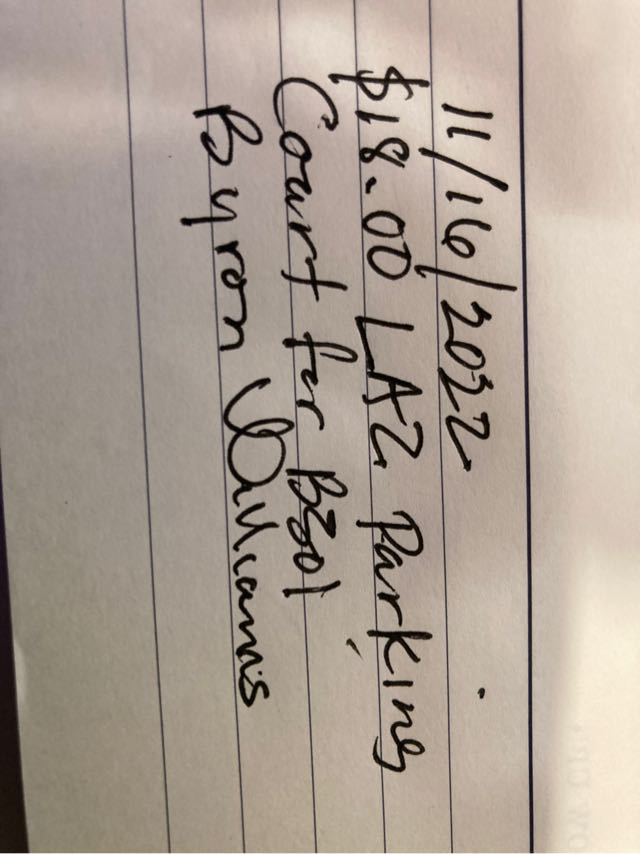 11/16/2022
$18.00 LAZ Parking
Court for B301
Byron Williams